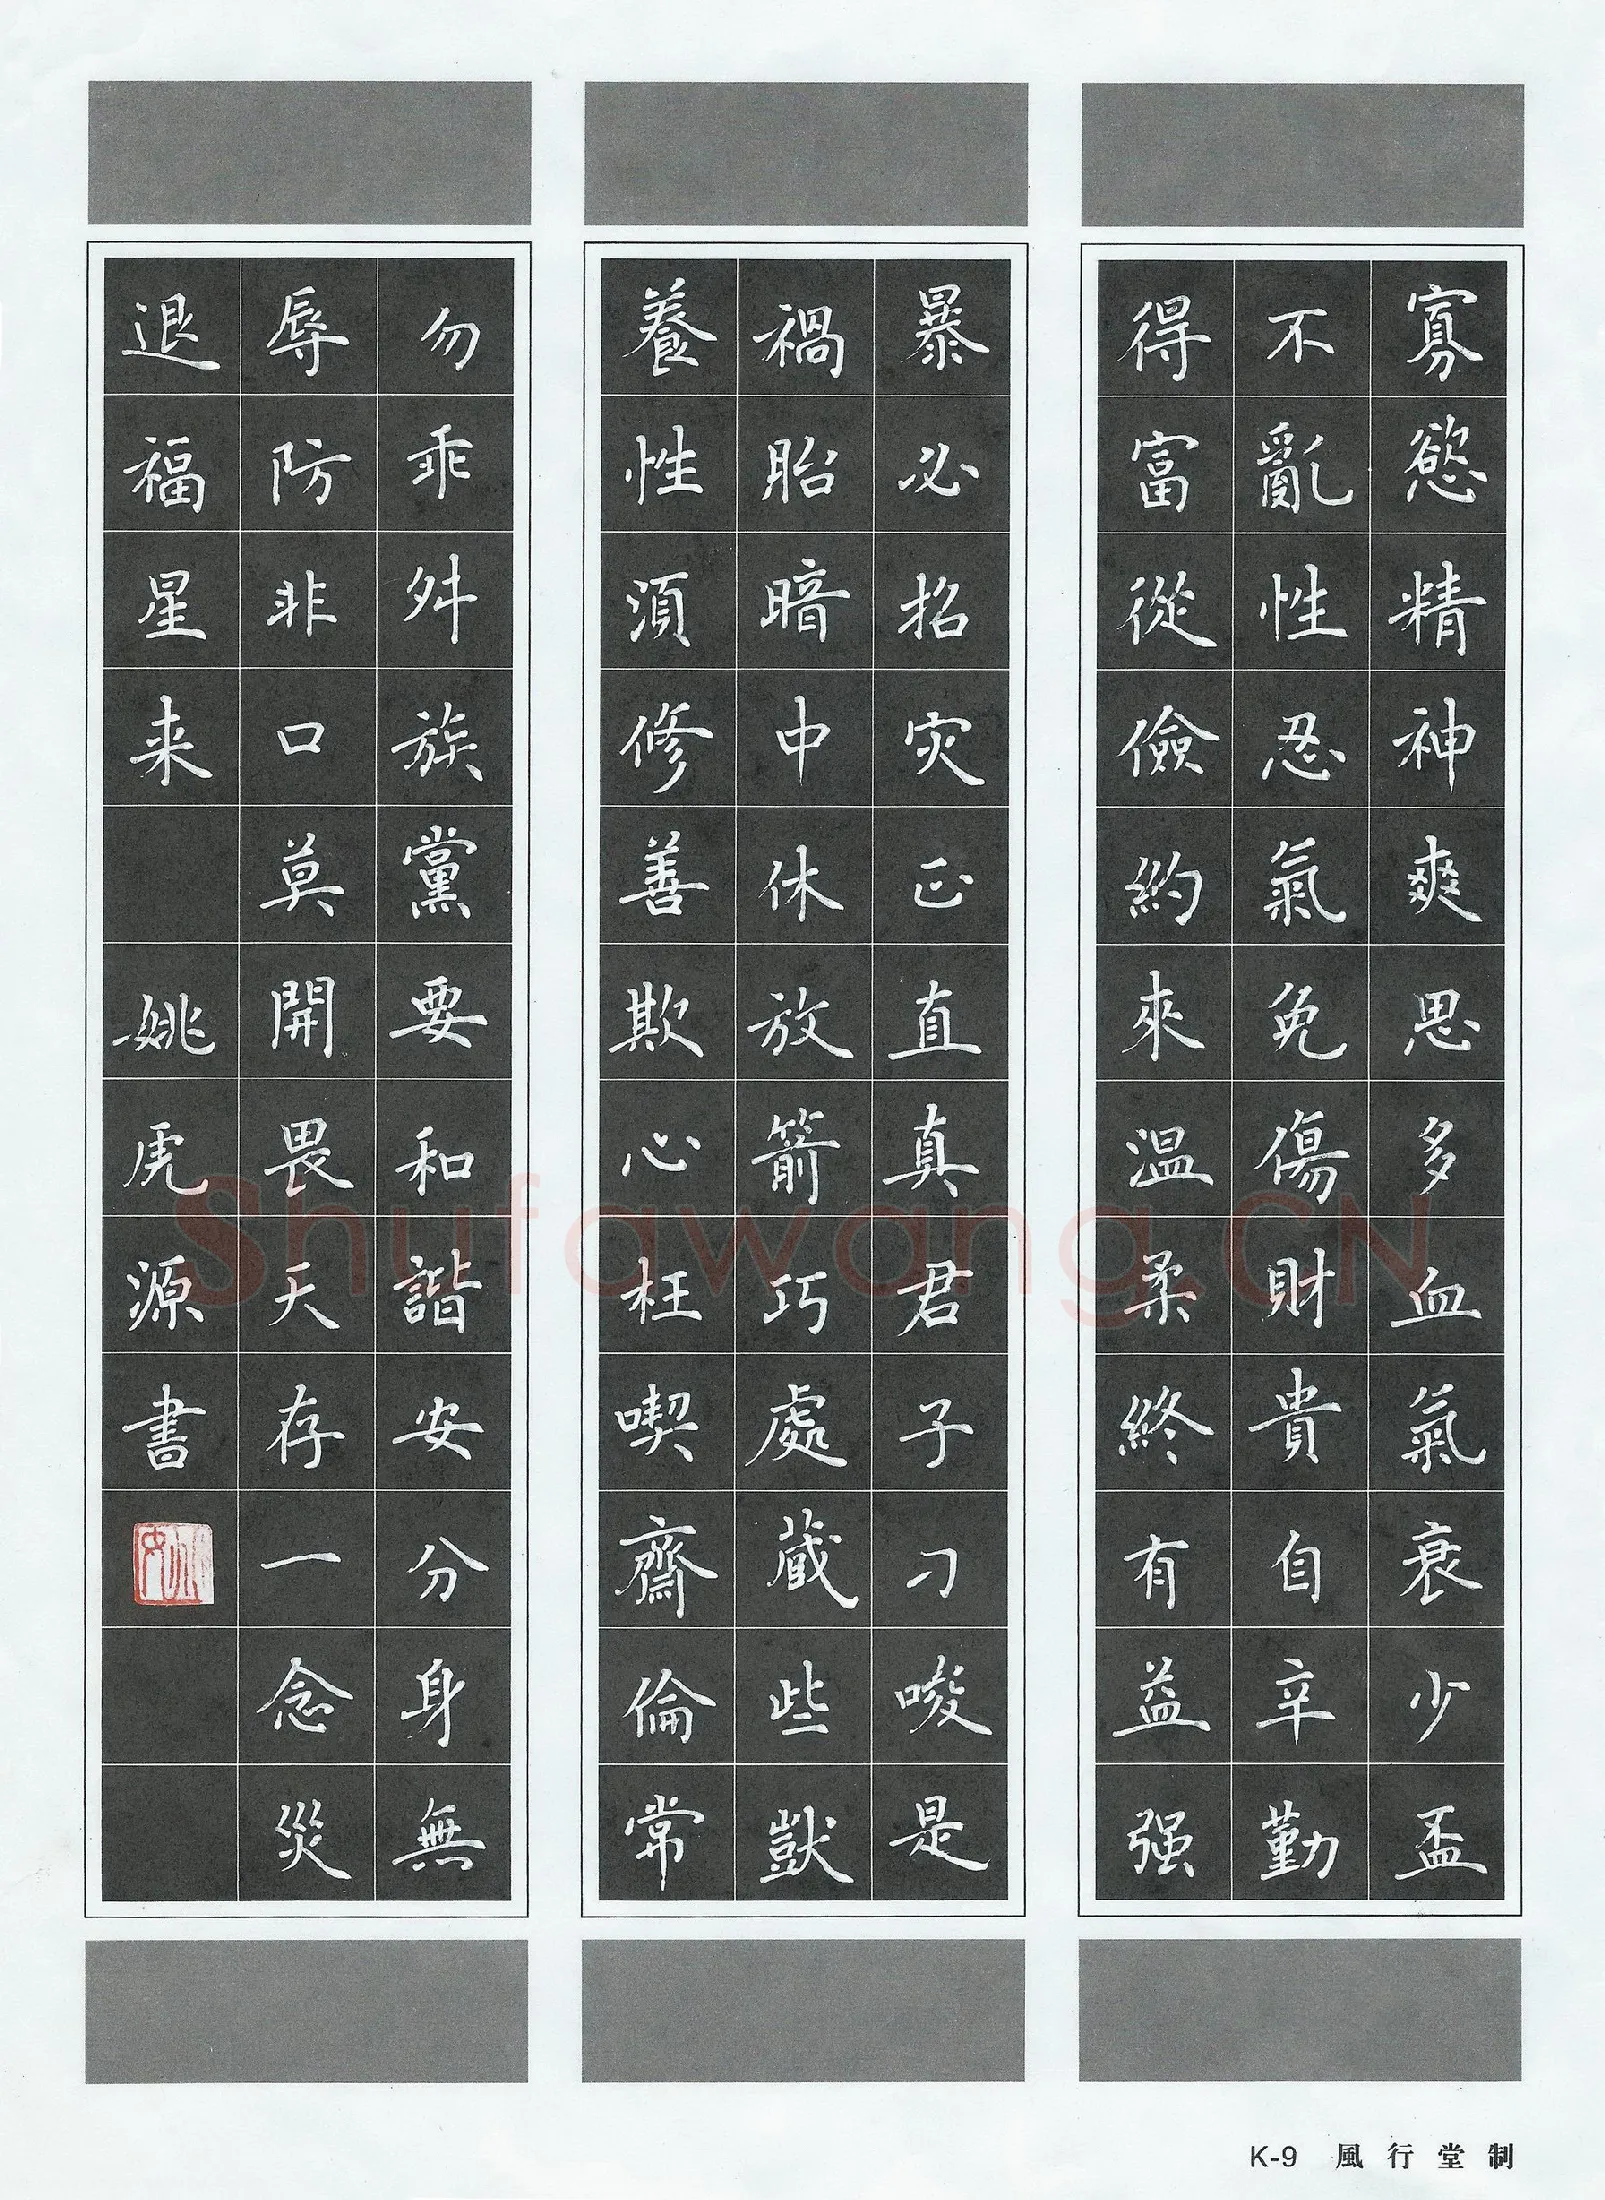 寡慾精神爽思多血氣衰少盃
不亂性忍氣免傷財貴自辛勤
得富從儉約來温柔終有益强
暴必招灾正直真君子刁唆是
禍胎暗中休放箭巧處蔵些獃
養性須修善欺心枉喫齋倫常
勿乖舛族黨要和諧安分身無
辱防非口莫開畏天存一念災
退福星来 姚虎源書
Shufawang.CN
K-9 風行堂制